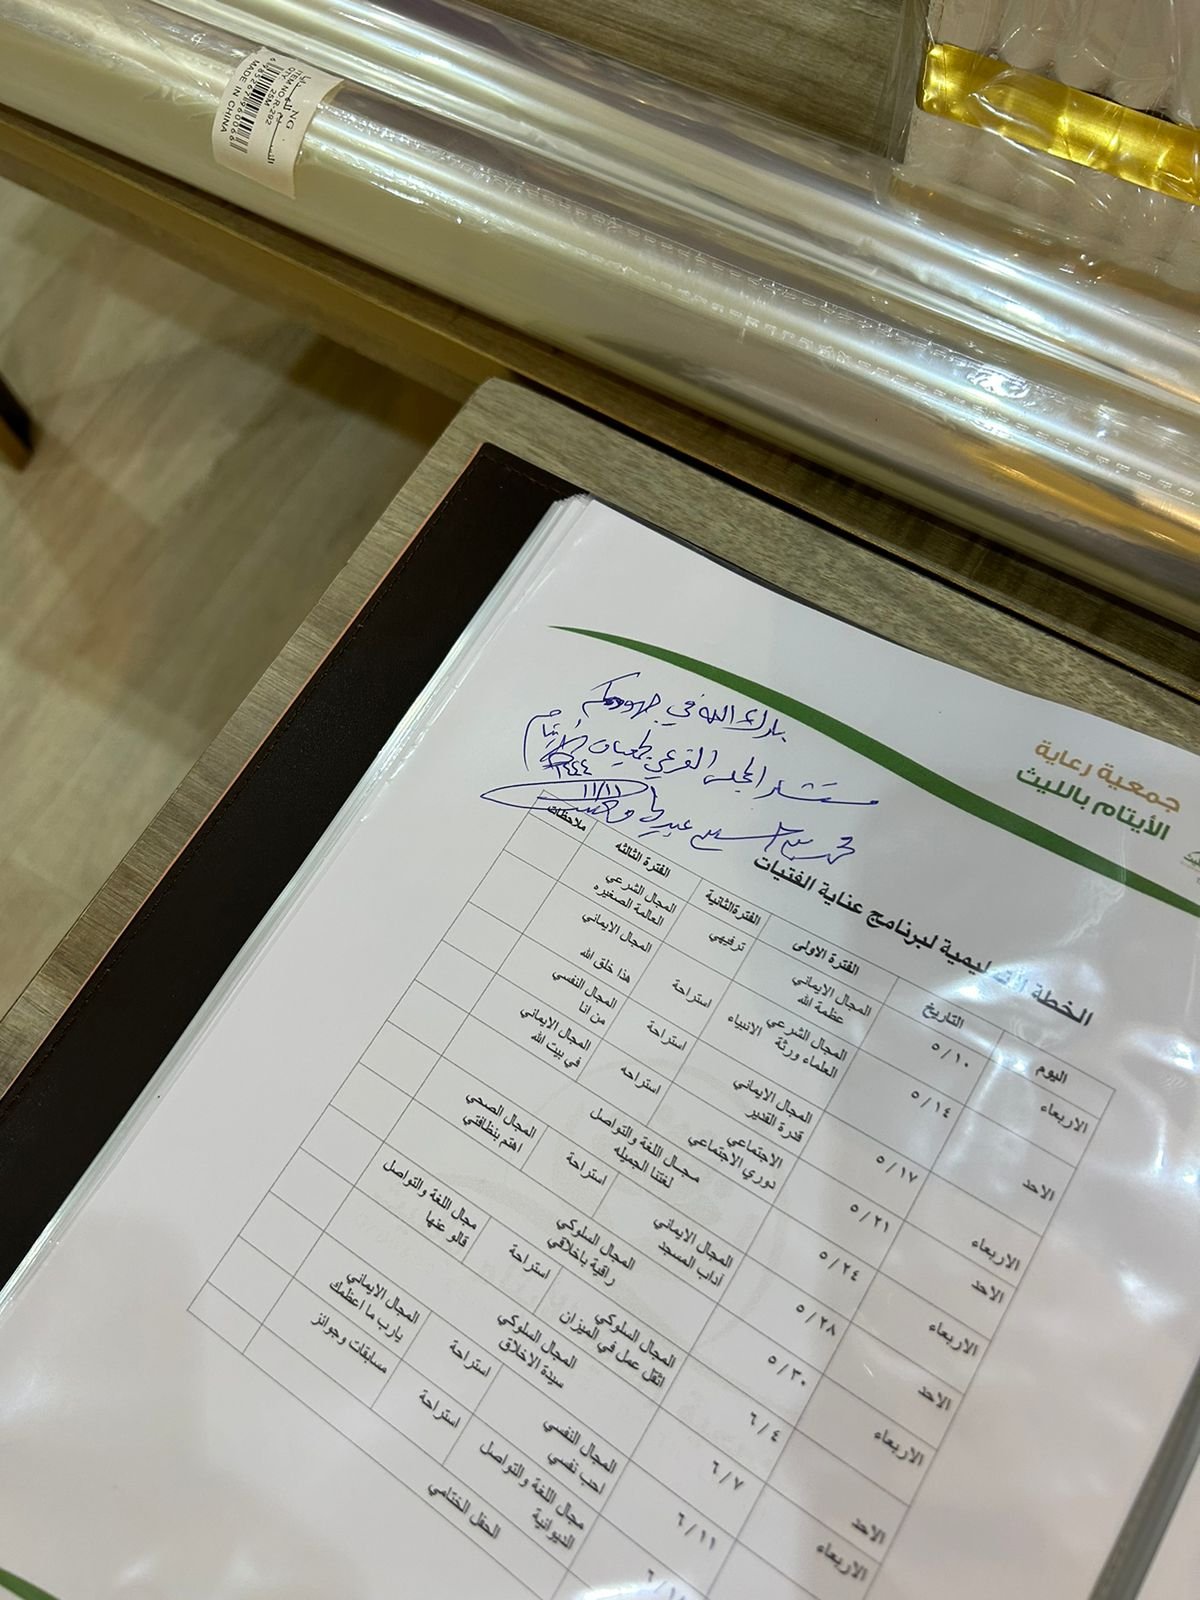 ITEM NO:R-292
QTY: 25M
MADE IN CHINA
جمعية رعاية
الأيتام بالليث
بارك الله في جهودكم
مستشار المجلس الفرعي لجمعيات الأيتام
محمد بن
١١/١١
الخطة التعليمية لبرنامج عناية الفتيات
اليوم التاريخ الفترة الاولى الفترة الثانية الفترة الثالثه ملاحظات
الاربعاء ٥/١٠ المجال الايماني ترفيهي المجال الشرعي
عظمة الله العالمة الصغيره
الاحد ٥/١٤ المجال الشرعي استراحة المجال الايماني
العلماء ورثة الانبياء هذا خلق الله
الاربعاء ٥/١٧ المجال الايماني استراحة المجال النفسي
قدرة القدير من انا
الاحد ٥/٢١ الاجتماعي استراحه المجال الايماني
دوري الاجتماعي في بيت الله
الاربعاء ٥/٢٤ مجال اللغة والتواصل
لغتنا الجميله
الاحد ٥/٢٨ المجال الايماني استراحة المجال الصحي
آداب المسجد اهتم بنظافتي
الاربعاء ٥/٣٠ المجال السلوكي
راقية باخلاقي
الاحد ٦/٤ المجال السلوكي استراحة مجال اللغة والتواصل
اثقل عمل في الميزان قالو عنها
الاربعاء ٦/٧ المجال السلوكي
سيدة الاخلاق
٦/١١ المجال النفسي استراحة المجال الايماني
احب نفسي يارب ما اعظمك
مجال اللغة والتواصل استراحة مسابقات وجوائز
النيوانية
الحفل الختامي